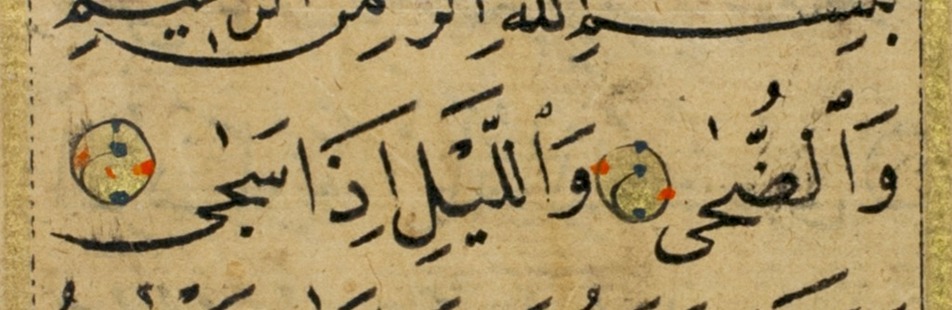 بِسْمِ ٱللَّهِ ٱلرَّحْمَٰنِ ٱلرَّحِيمِ
وَٱلضُّحَىٰ وَٱللَّيْلِ إِذَا سَجَىٰ